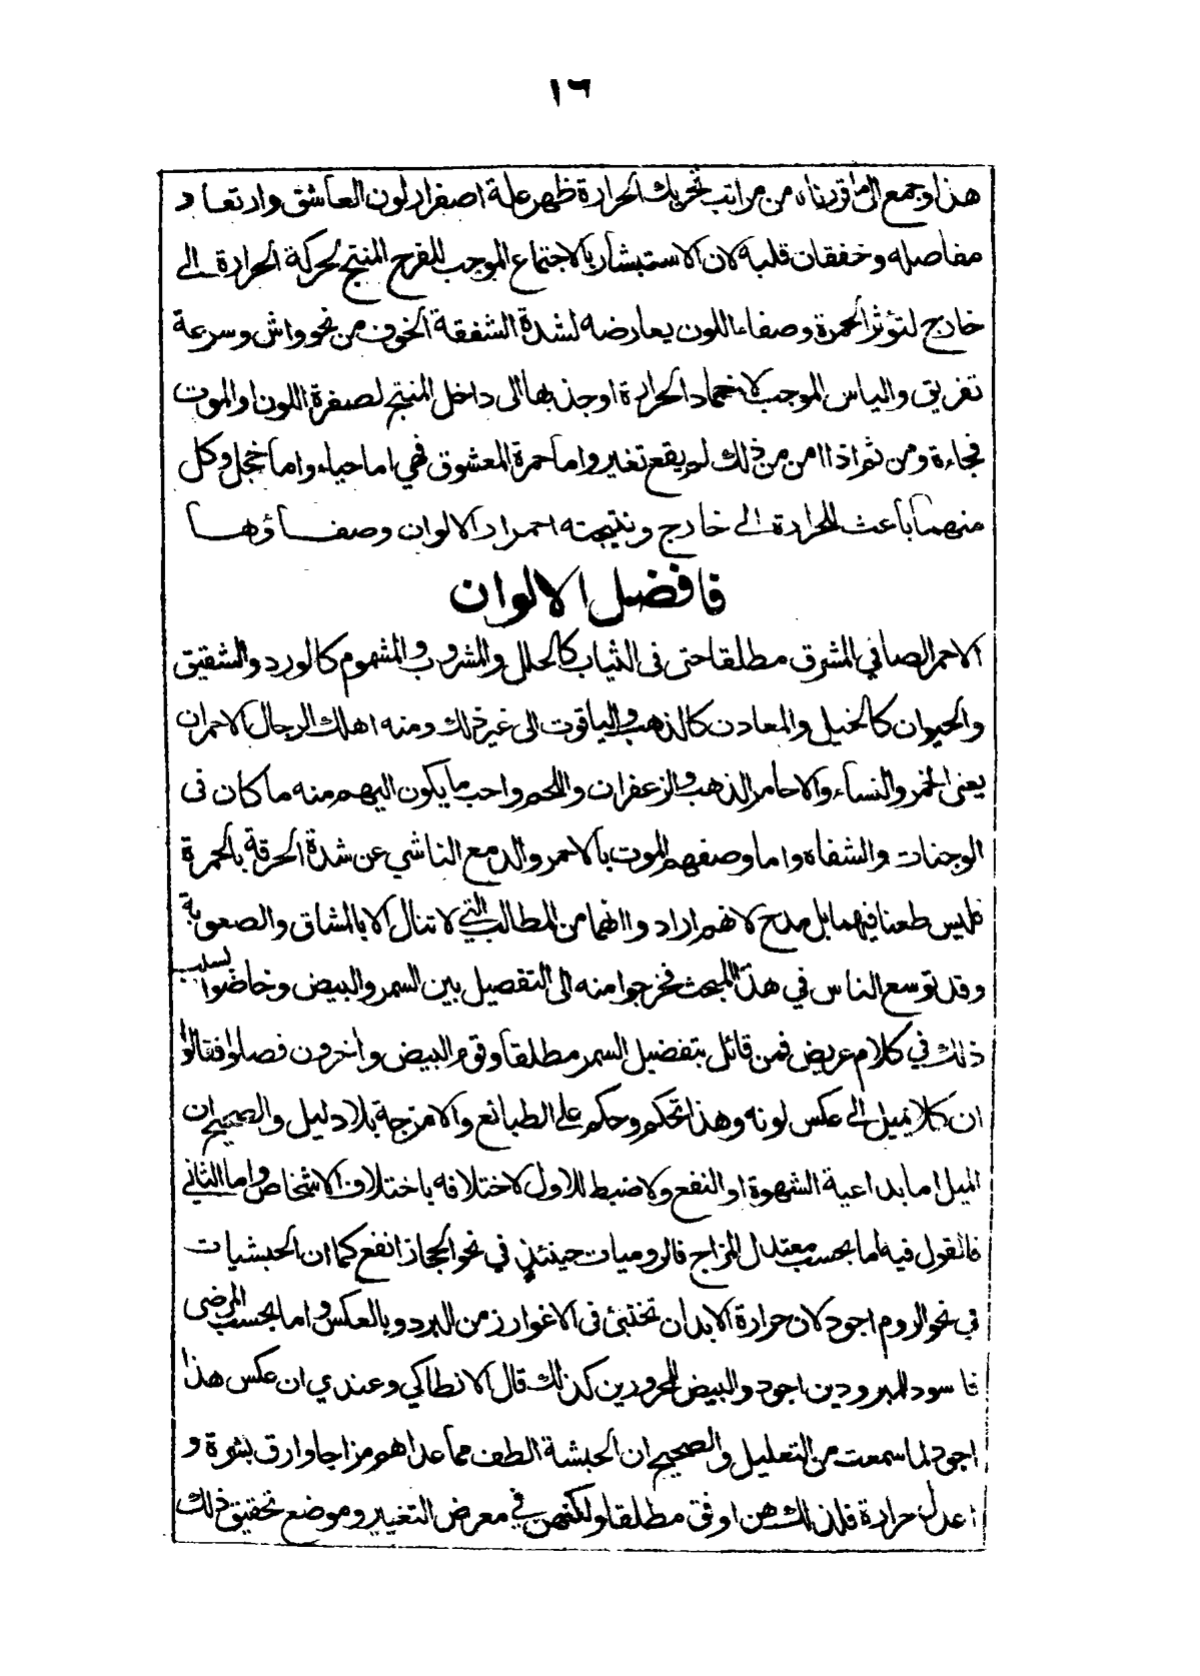 ١٦
هذا وجمع الى ما قررناه من مراتب تحريك الحرارة ظهر علة اصفرار لون العاشق وارتعاد
مفاصله وخفقان قلبه لان الاستبشار بالاجتماع الموجب للفرح المنتج لحركة الحرارة الى
خارج لتؤثر الحمرة وصفاء اللون يعارضه لشدة الشفقة الخوف من نحو واش وسرعة
تفريق والياس الموجب لانخماد الحرارة او جذبها الى داخل المنتج لصفرة اللون او الموت
فجاءة ومن ثم اذا امن من ذلك لم يقع تغير واما حمرة المعشوق فهي اما حياء واما خجل وكل
منهما باعث للحرارة الى خارج ونتيجته احمرار الالوان وصفاؤها
فافضل الالوان
الاحمر الصافي المشرق مطلقا حتى فى الثياب كالحلل والمشروب والمشموم كالورد والشقيق
والحيوان كالخيل والمعادن كالذهب والياقوت الى غير ذلك ومنه اهلك الرجال الاحمران
يعنى الخمر والنساء والاحامر الذهب والزعفران واللحم واحب ما يكون اليهم منه ما كان فى
الوجنات والشفاه واما وصفهم الموت بالاحمر والدمع الناشي عن شدة الحرقة بالحمرة
فليس طعنا فيهما بل مدح لانهم ارادوا انهما من المطالب التي لا تنال الا بالمشاق والصعوبة
وقد توسع الناس في هذا المبحث فخرجوا منه الى التفصيل بين السمر والبيض وخاضوا بسبب
ذلك في كلام عريض فمن قائل بتفضيل السمر مطلقا وقوم البيض واخرون فصلوا فقالوا
ان كلا يميل الى عكس لونه وهذا تحكم وحكم على الطبائع والامزجة بلا دليل والصحيح ان
الميل اما بداعية الشهوة او النفع ولا ضبط للاول لاختلافه باختلاف الاشخاص واما الثاني
فالقول فيه اما بحسب معتدل المزاج فالروميات حينئذ في نحو الحجاز انفع كما ان الحبشيات
في نحو الروم اجود لان حرارة الابدان تختبئ فى الاغوار زمن البرد وبالعكس واما بحسب المرضى
فاسود للمبرودين اجود والبيض للمحرورين كذلك قال الانطاكي وعندي ان عكس هذا
اجود لما سمعت من التعليل والصحيح ان الحبشة الطف مما عداهم مزاجا وارق بشرة و
اعدل حرارة فلذلك هن اوفق مطلقا ولكنهن في معرض التغيير وموضع تحقيق ذلك